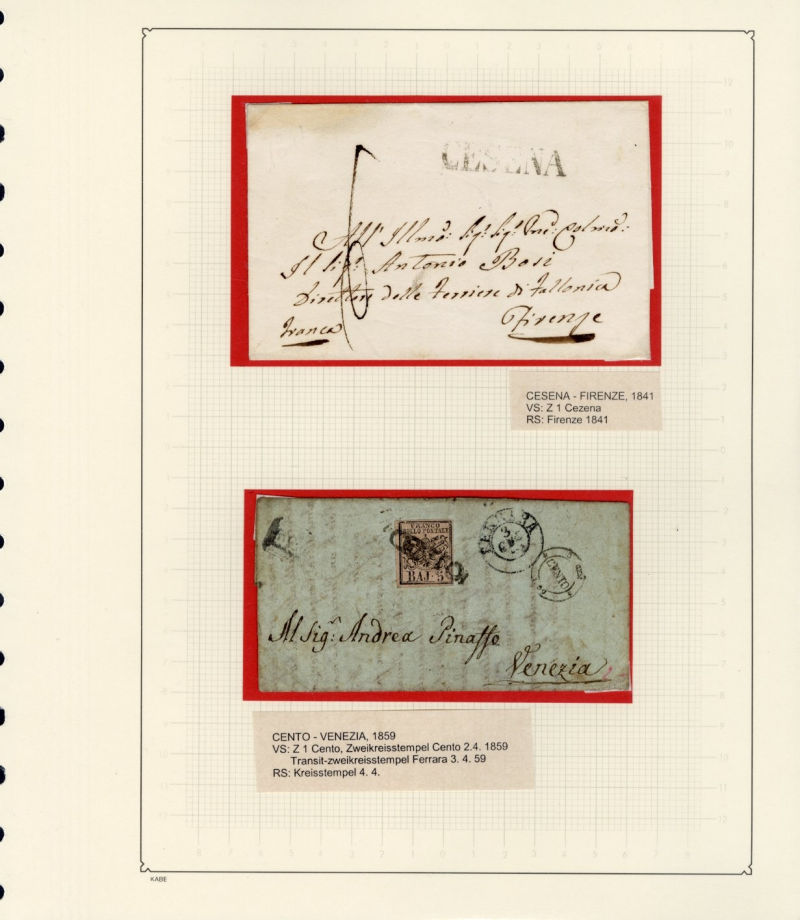 CESENA
All' Illmo: Sigr: Sigr: Prne: Colmo:
Il Sigr: Antonio Bosi
Direttore delle Ferriere di Fallonica
Franca
Firenze
CESENA - FIRENZE, 1841
VS: Z 1 Cezena
RS: Firenze 1841
FRANCO
BOLLO POSTALE
BAJ. 5
CENTO
FERRARA
CENTO
Al Sigr: Andrea Pinaffo
Venezia
CENTO - VENEZIA, 1859
VS: Z 1 Cento, Zweikreisstempel Cento 2.4. 1859
Transit-zweikreisstempel Ferrara 3. 4. 59
RS: Kreisstempel 4. 4.
KABE